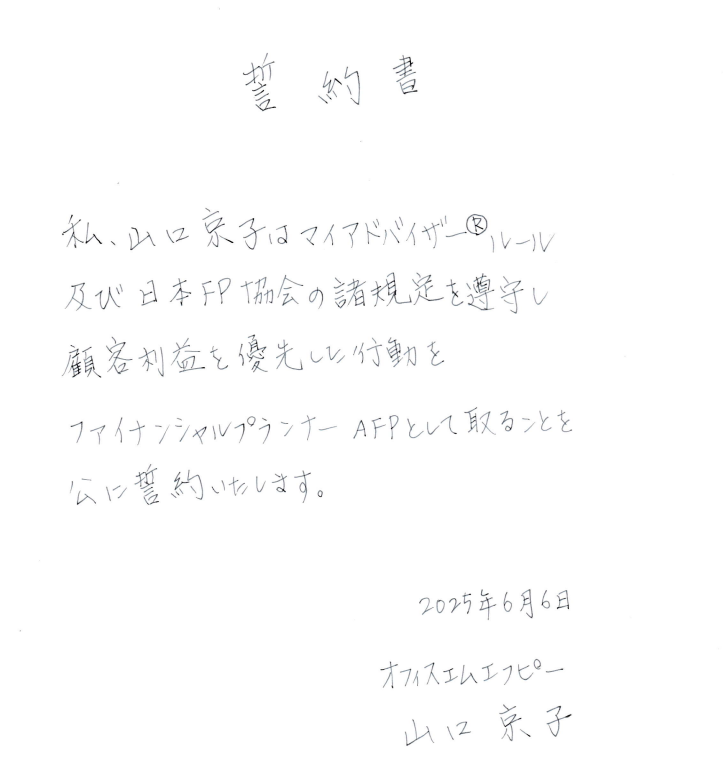 誓約書
私、山口京子はマイアドバイザー®ルール
及び日本FP協会の諸規定を遵守し
顧客利益を優先した行動を
ファイナンシャルプランナー AFPとして取ることを
公に誓約いたします。
2025年6月6日
オフィスエムエフピー
山口京子